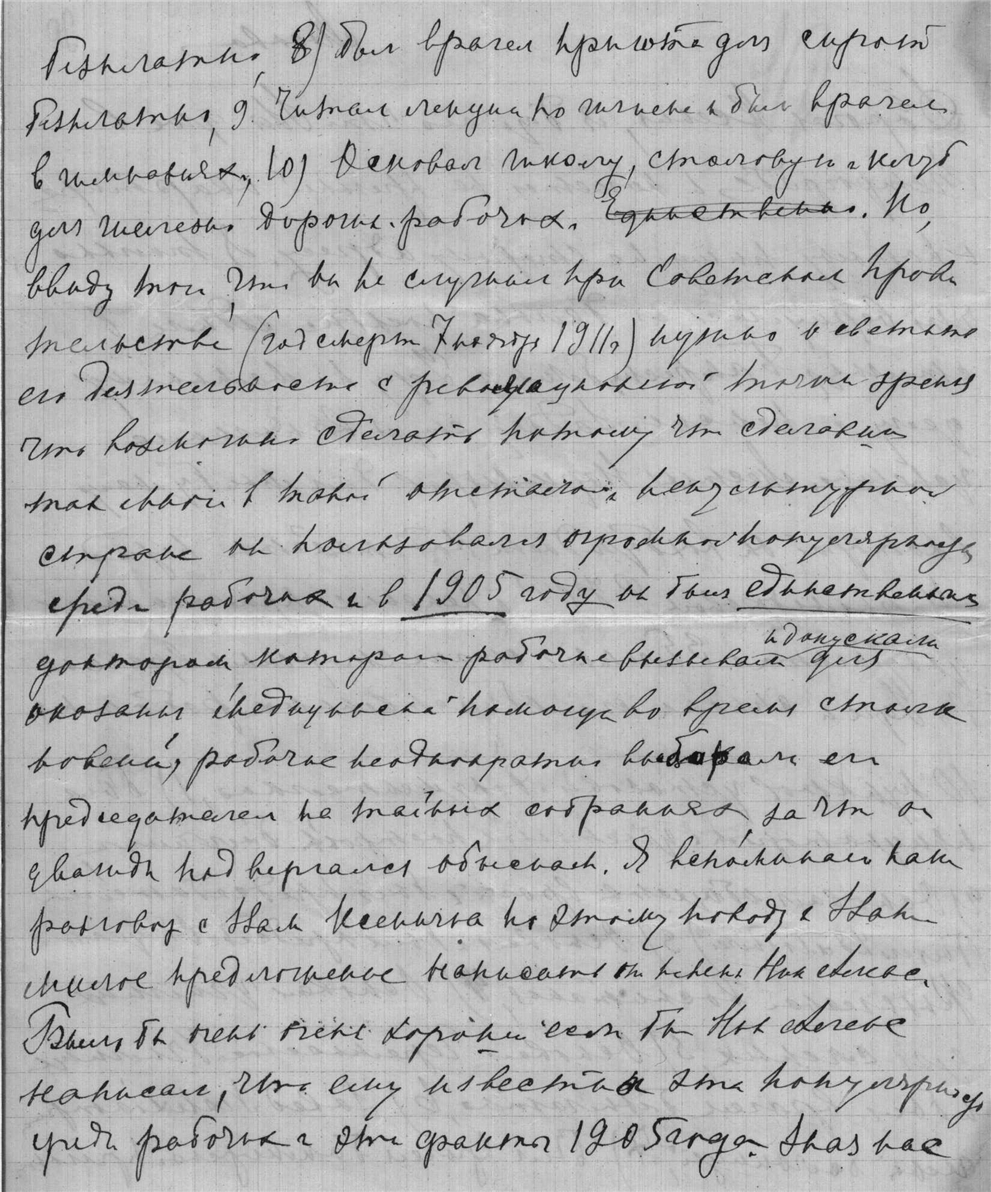 безплатно, 8) был врачем приюта для сирот
безплатно, 9. Читал лекции по гигиене и был врачем
в гимназиях, 10) Основал школу, столовую и клуб
для железно дорожн. рабочих. Единственно. Но,
ввиду того, что он не служил при Советском Прави
тельстве (год смерти 7 ноября 1911 г) нужно осветить
его деятельность с революционной точки зрения
что возможно сделать потому что сделавши
так много в такой отсталой, некультурной
стране он пользовался огромной популярностью
среди рабочих и в 1905 году он был единственным
и допускали
доктором которого рабочие вызывали для
оказания медицинской помощи во время столк
новений, рабочие неоднократно выбирали его
председателем на тайных собраниях, за что он
дважды подвергался обыскам. Я вспоминаю наш
разговор с Вами Ксенична по этому поводу и Ваше
милое предложение написать от имени Ник Алекс.
Было бы очень очень хорошо если бы Ник Алекс
написал, что ему известна эта популярность
среди рабочих и эти факты 1905 года. Зная вас